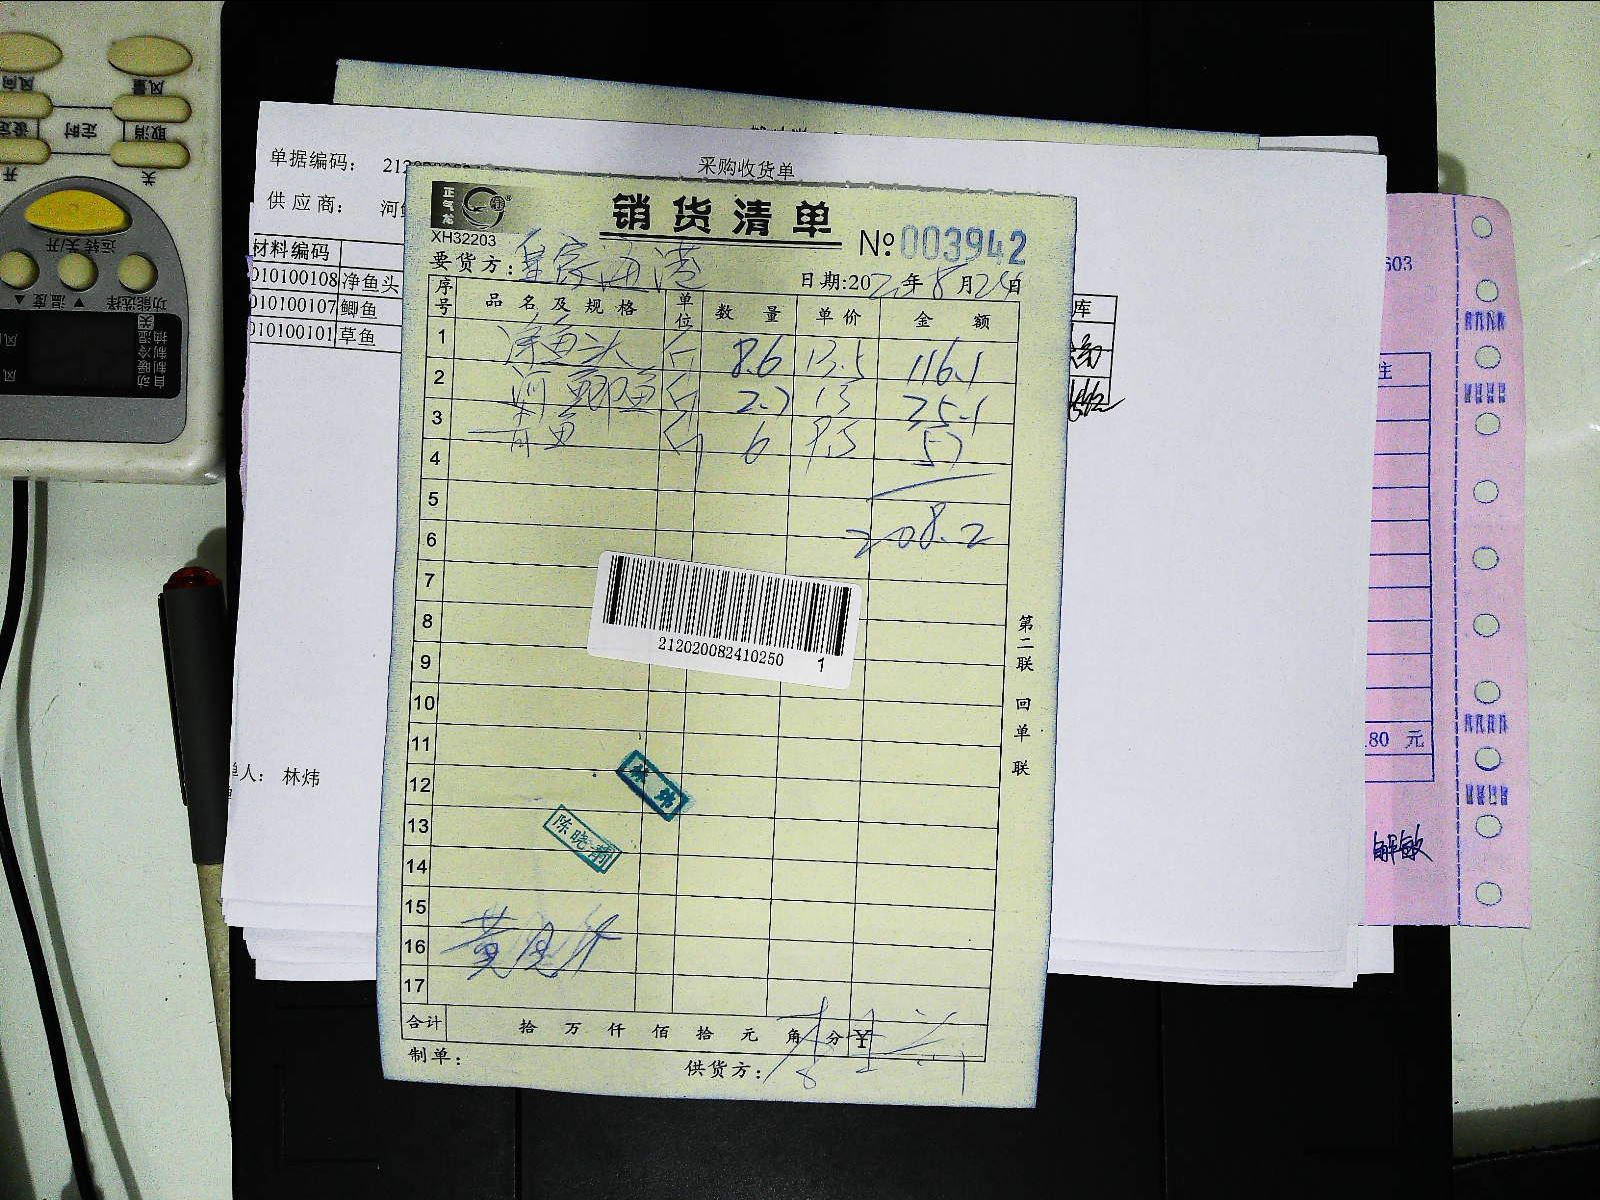 采购收货单
单据编码:
供应商: 河
材料编码
010100108 净鱼头
010100107 鲫鱼
010100101 草鱼
库
林炜
正气龙
XH32203
销货清单
№003942
要货方: 皇家海湾
日期:2020年8月24日
序号 品名及规格 单位 数量 单价 金额
1 净鱼头 斤 8.6 13.5 116.1
2 河鲫鱼 斤 2.7 13 35.1
3 青鱼 斤 6 9.5 57
4
5
6 208.2
7
8
212020082410250 1
9
10
11
12
林炜
13
陈晓莉
14
15
16
17
合计 拾 万 仟 佰 拾 元 角 分 ¥
制单:
供货方:
第二联 回单联
603
注
180 元
解敏
风向 风量
定时 取消
开 关
运转 关/开
▼ 温度 ▲ 功能选择
自动
制暖
制冷
抽湿